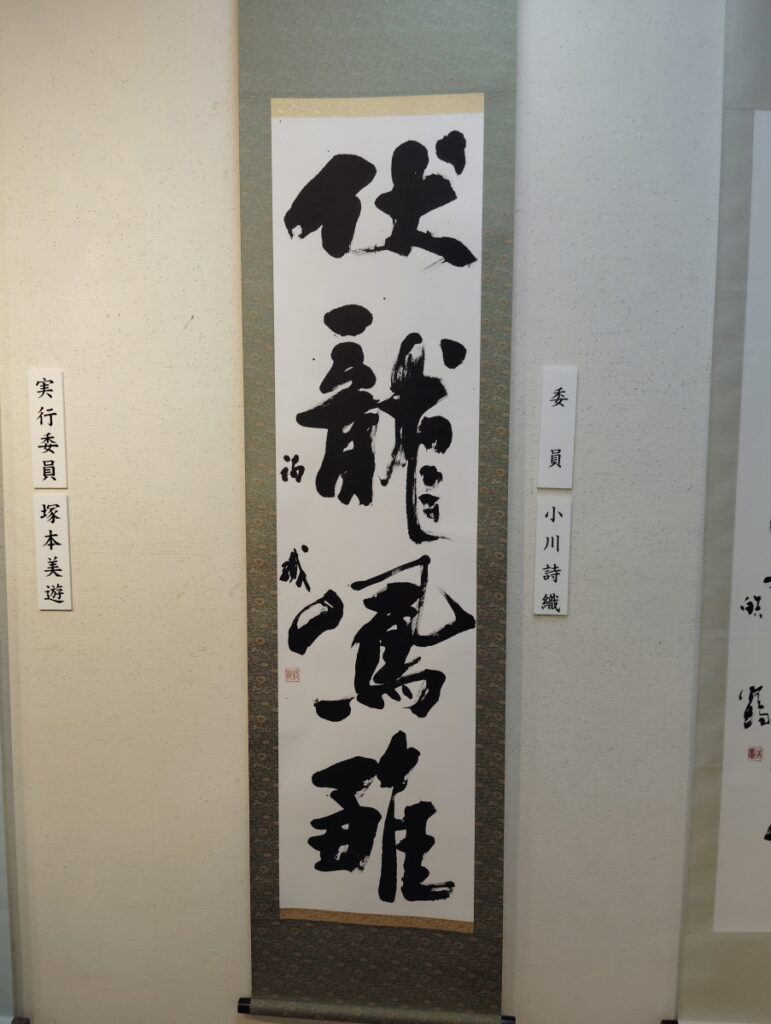 委員
小川詩織
伏龍鳳雛
詩織
実行委員
塚本美遊